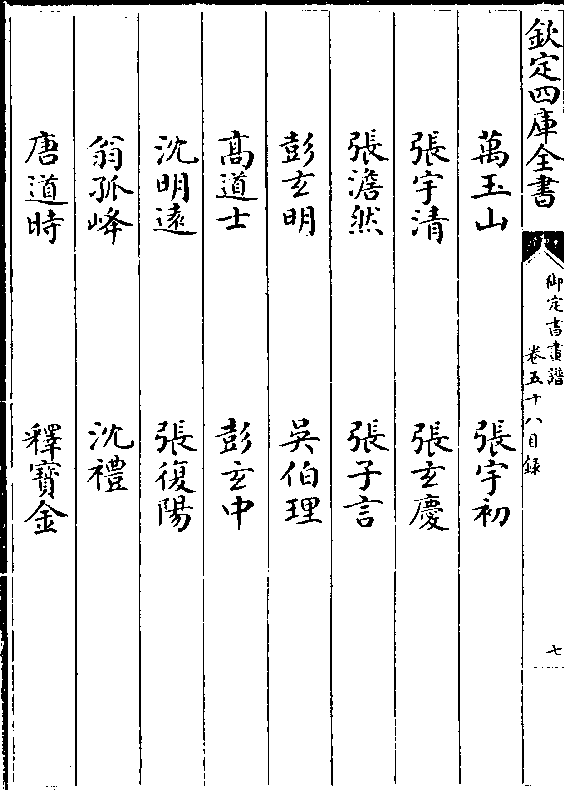 欽定四庫全書
御定書畫譜
卷五十八目録
七
萬玉山 張宇初
張宇清 張玄慶
張澹然 張子言
彭玄明 吳伯理
髙道士 彭玄中
沈明遠 張復陽
翁孤峰 沈禮
唐道時 釋寳金